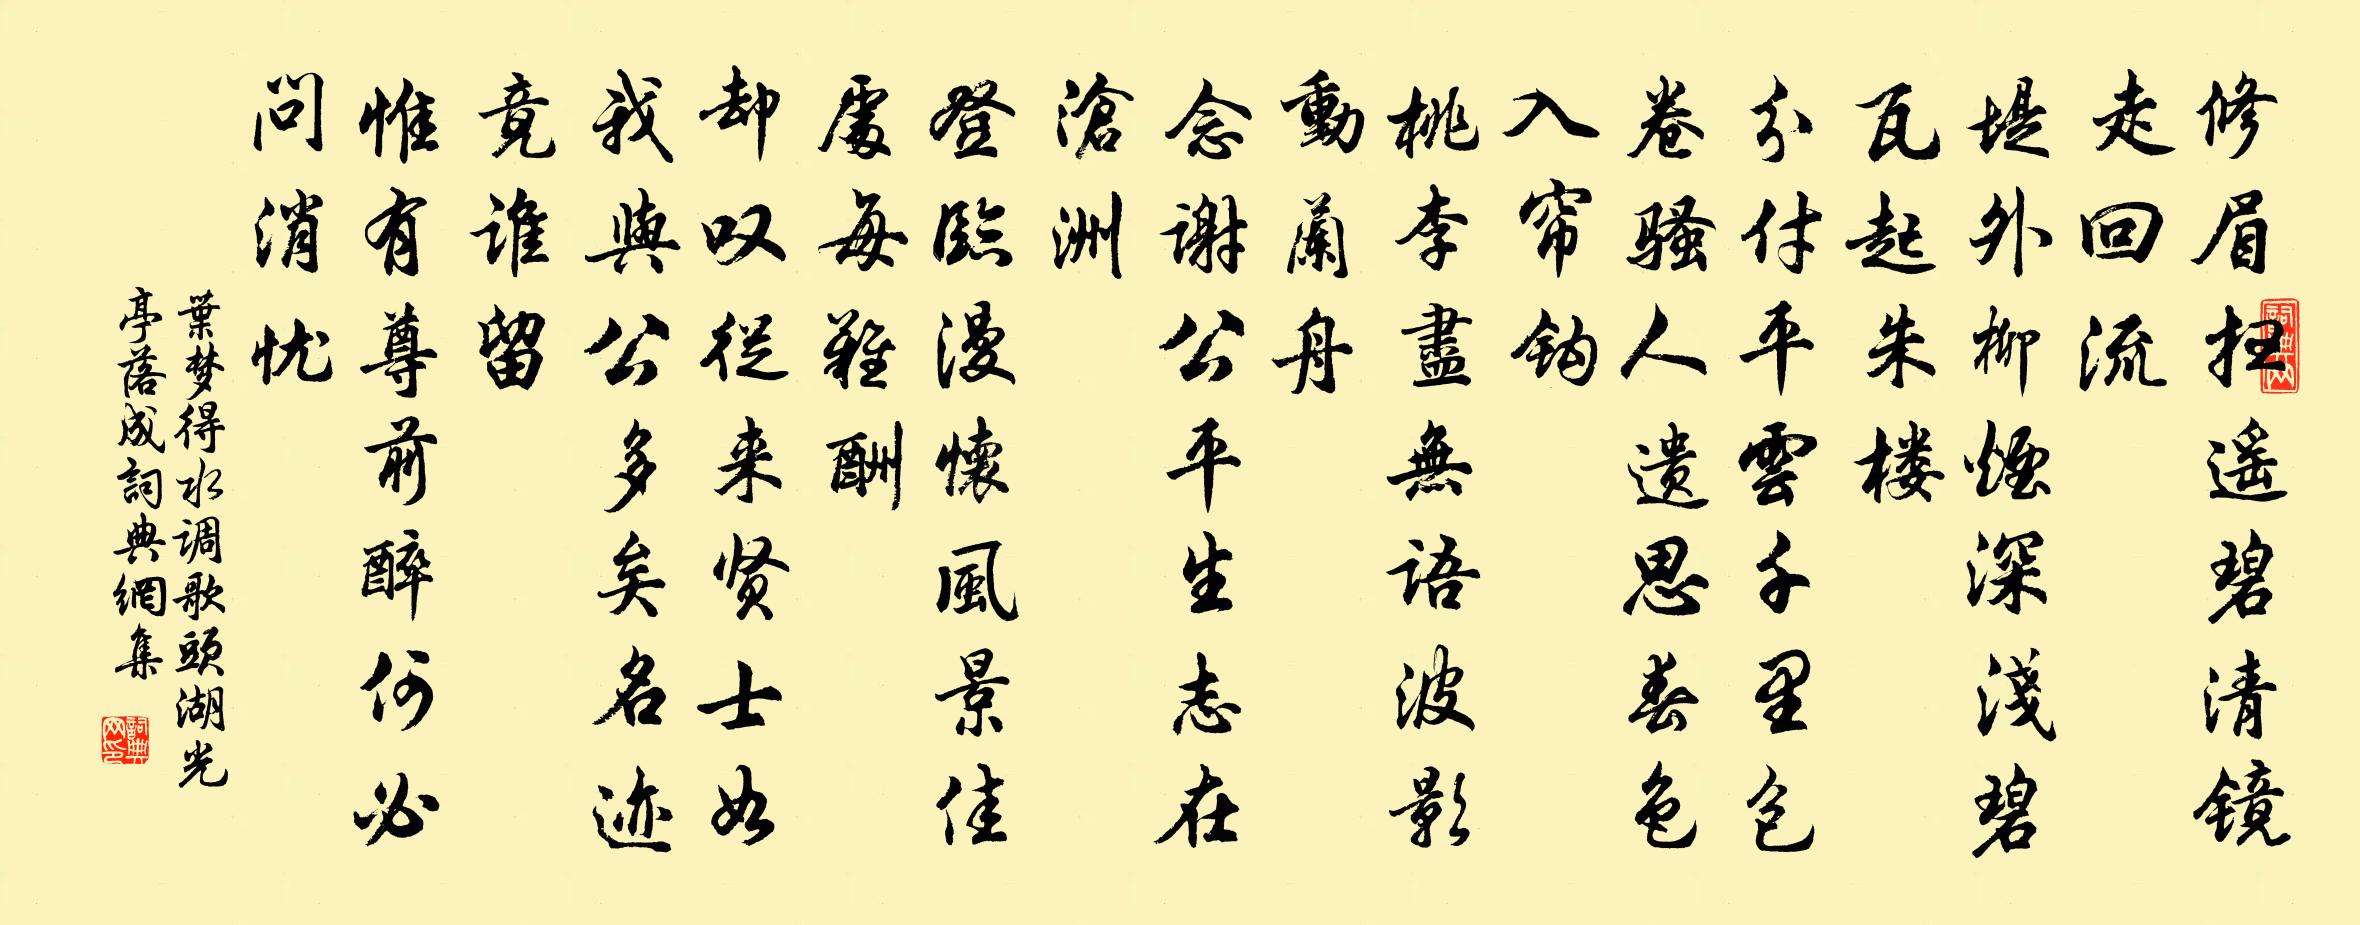 修眉扫遥碧清镜
走回流
堤外柳煙深淺碧
瓦起朱楼
分付平雲千里包
卷骚人遗思春色
入帘钩
桃李盡無語波影
動蘭舟
念谢公平生志在
滄洲
登臨漫懷風景佳
處每難酬
却叹從来贤士如
我與公多矣名迹
竟谁留
惟有尊前醉何必
问消忧
葉梦得水调歌頭湖光
亭落成詞典網集
詞典网
詞典网印